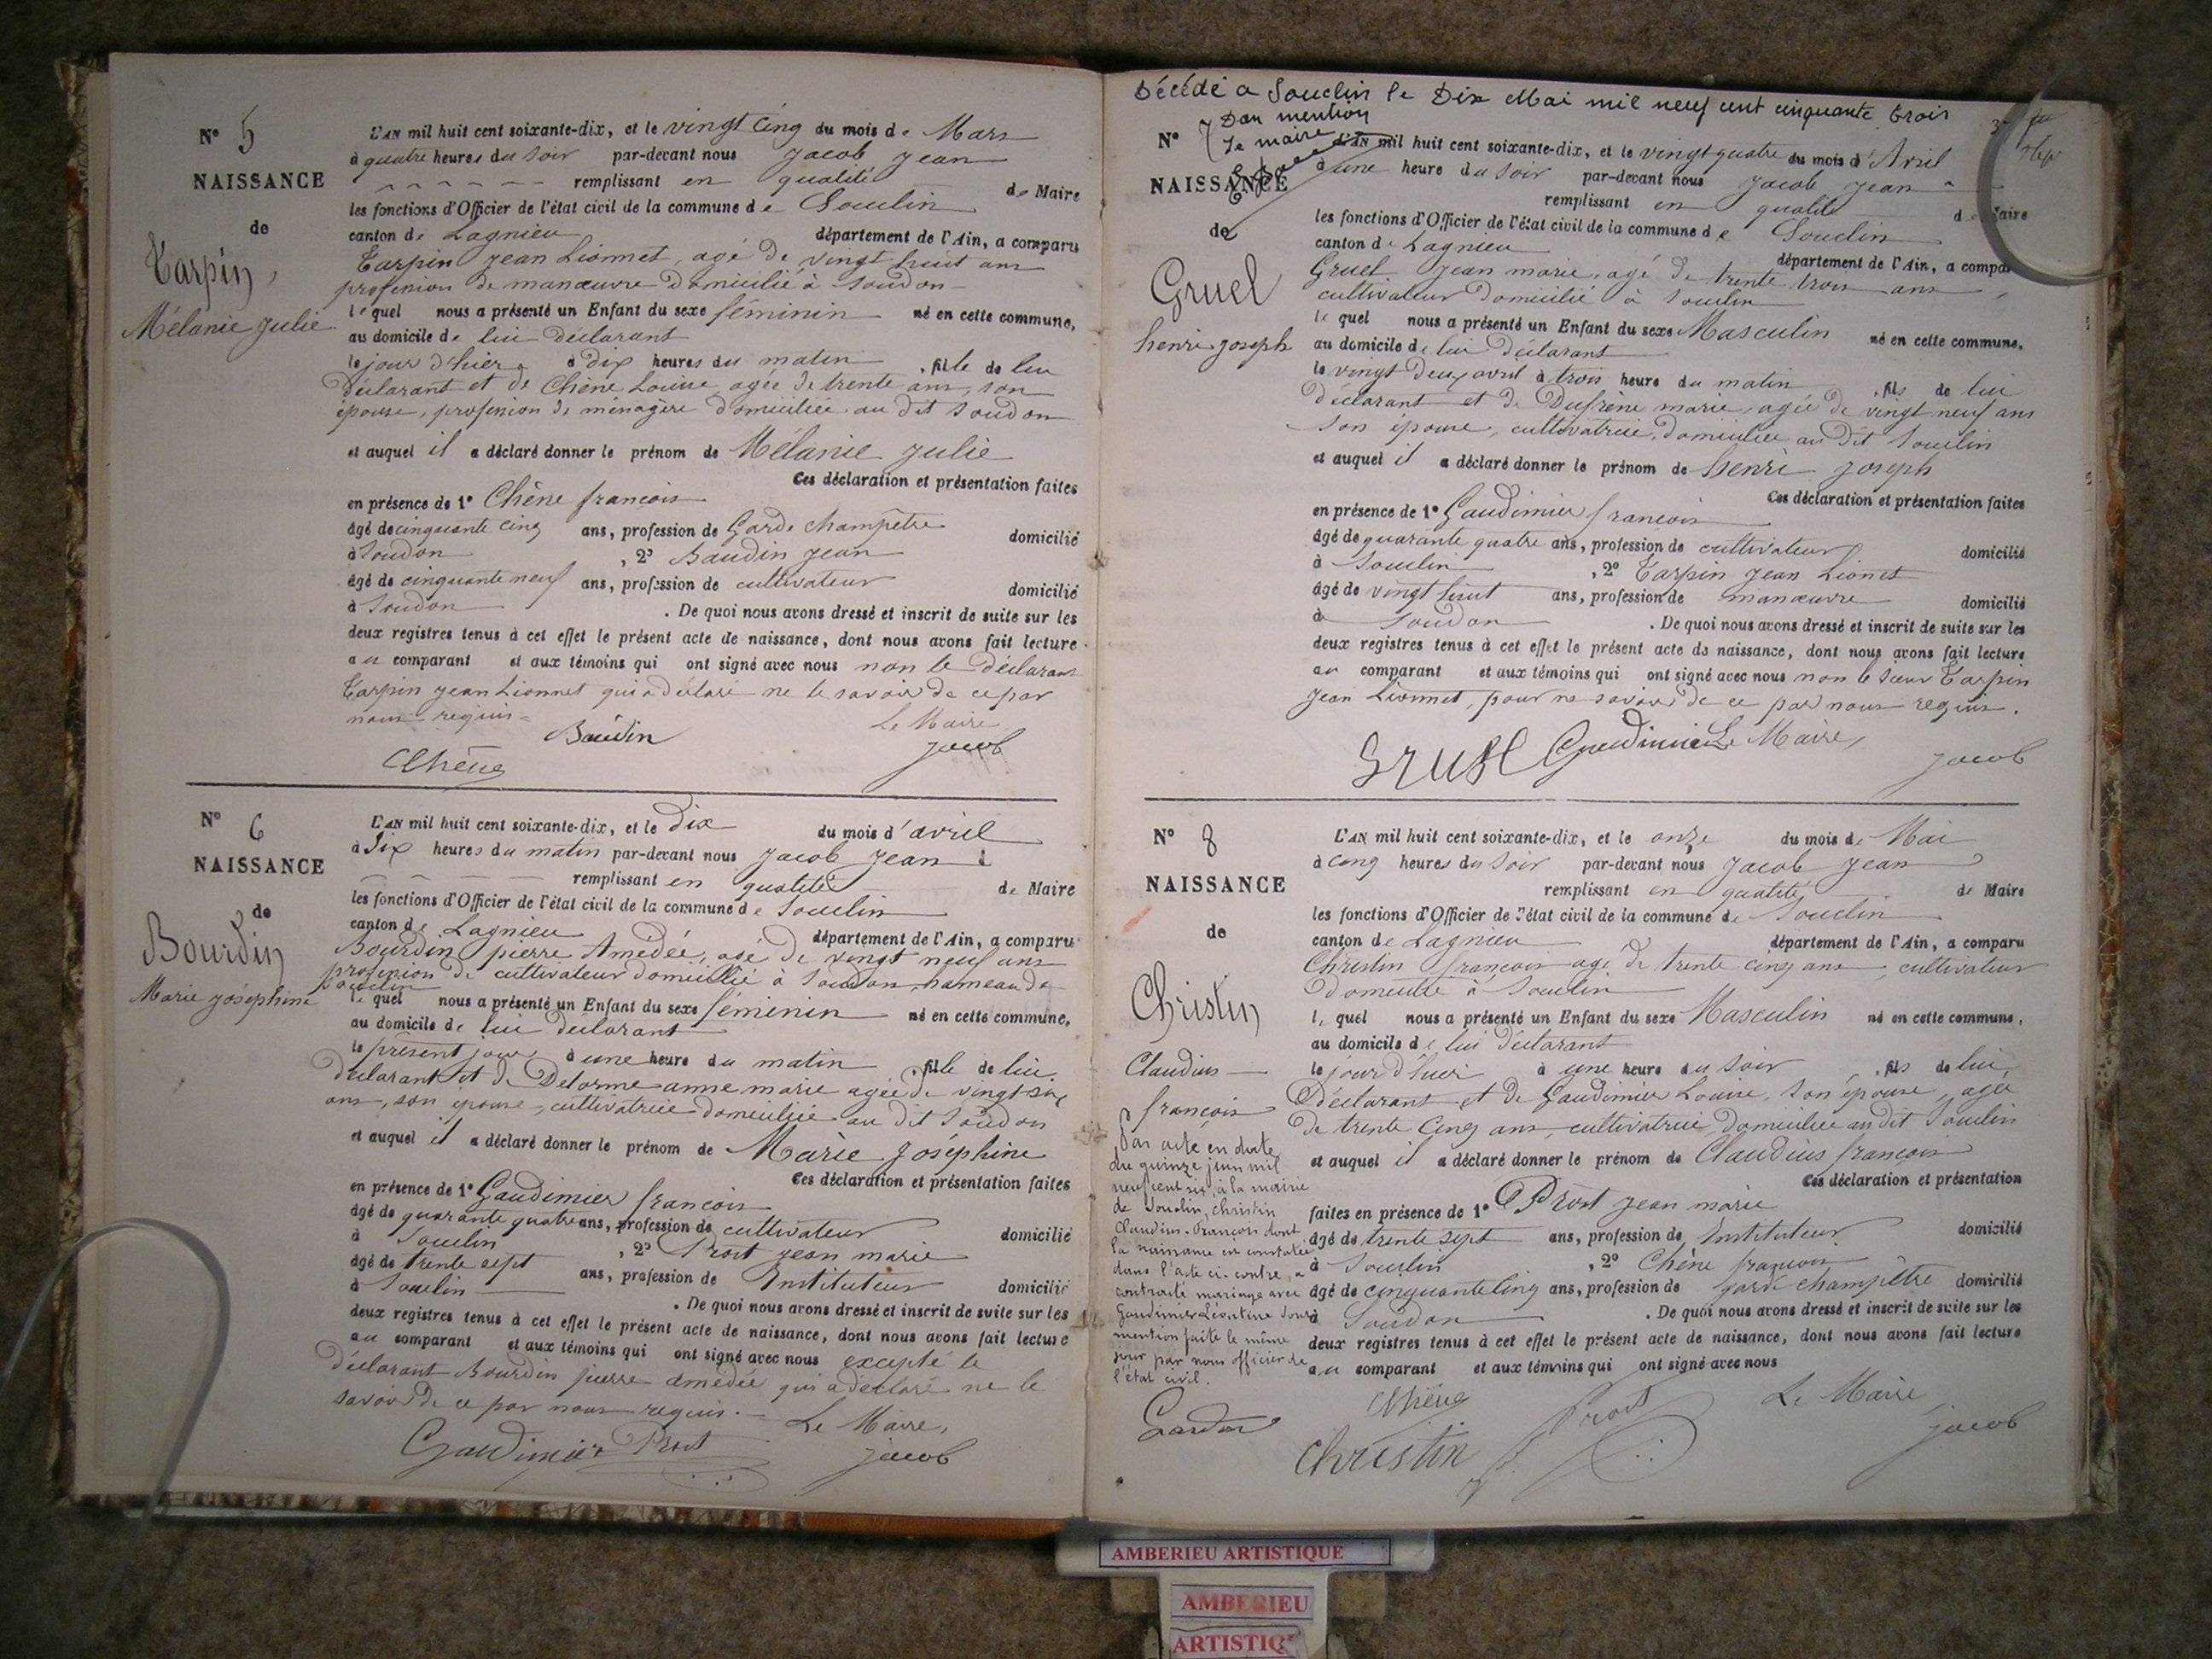 N° 5
NAISSANCE
de
Tarpin,
Mélanie Julie
L'AN mil huit cent soixante-dix, et le vingt cinq du mois de Mars
à quatre heures du soir par-devant nous Jacob Jean
remplissant en qualité de Maire
les fonctions d'Officier de l'état civil de la commune de Souclin
canton de Lagnieu département de l'Ain, a comparu
Tarpin Jean Lionnet, agé de vingt huit ans
profession de manœuvre domicilié à Soudon
lequel nous a présenté un Enfant du sexe féminin né en cette commune,
au domicile de lui déclarant
le jour d'hier à dix heures du matin, fille de lui
déclarant et de Chêne Louise agée de trente ans, son
épouse, profession de ménagère domiciliée au dit Soudon
et auquel il a déclaré donner le prénom de Mélanie Julie
Ces déclaration et présentation faites
en présence de 1° Chêne francois
âgé de cinquante cinq ans, profession de Garde champêtre domicilié
à Soudon, 2° Baudin Jean
âgé de cinquante neuf ans, profession de cultivateur domicilié
à Soudon. De quoi nous avons dressé et inscrit de suite sur les
deux registres tenus à cet effet le présent acte de naissance, dont nous avons fait lecture
au comparant et aux témoins qui ont signé avec nous non le déclarant
Tarpin Jean Lionnet qui a déclaré ne le savoir de ce par
nous requis
Baudin Le Maire
Chêne Jacob
N° 6
NAISSANCE
de
Bourdin
Marie Joséphine
L'AN mil huit cent soixante-dix, et le dix du mois d'avril
à dix heures du matin par-devant nous Jacob Jean
remplissant en qualité de Maire
les fonctions d'Officier de l'état civil de la commune de Souclin
canton de Lagnieu département de l'Ain, a comparu
Bourdin pierre Amédée, agé de vingt neuf ans
profession de cultivateur domicilié à Soudon, hameau de
Souclin
lequel nous a présenté un Enfant du sexe féminin né en cette commune,
au domicile de lui déclarant
le présent jour à une heure du matin fille de lui
déclarant et de Delorme anne marie agée de vingt six
ans, son épouse, cultivatrice domiciliée au dit Soudon
et auquel il a déclaré donner le prénom de Marie Joséphine
Ces déclaration et présentation faites
en présence de 1° Gaudimier francois
âgé de quarante quatre ans, profession de cultivateur domicilié
à Souclin, 2° Prost Jean marie
âgé de trente sept ans, profession de Instituteur domicilié
à Souclin. De quoi nous avons dressé et inscrit de suite sur les
deux registres tenus à cet effet le présent acte de naissance, dont nous avons fait lecture
au comparant et aux témoins qui ont signé avec nous excepté le
déclarant Bourdin pierre amédée qui a déclaré ne le
savoir de ce par nous requis. Le Maire,
Gaudimier Prost Jacob
Décédé a Souclin le Dix Mai mil neuf cent cinquante trois
Don mention
Le maire
N° 7
NAISSANCE
de
Gruel
henri joseph
L'AN mil huit cent soixante-dix, et le vingt quatre du mois d'Avril
à une heure du soir par-devant nous Jacob Jean
remplissant en qualité de Maire
les fonctions d'Officier de l'état civil de la commune de Souclin
canton de Lagnieu département de l'Ain, a compar
Gruel Jean marie, agé de trente trois ans,
cultivateur domicilié à Souclin
lequel nous a présenté un Enfant du sexe Masculin né en cette commune,
au domicile de lui déclarant
le vingt deux avril à trois heure du matin, fils de lui
déclarant et de Dufrène marie, agée de vingt neuf ans
son épouse, cultivatrice, domiciliée au dit Souclin
et auquel il a déclaré donner le prénom de henri joseph
Ces déclaration et présentation faites
en présence de 1° Gaudimier francois
âgé de quarante quatre ans, profession de cultivateur domicilié
à Souclin, 2° Tarpin Jean Lionet
âgé de vingt huit ans, profession de manœuvre domicilié
à Soudon. De quoi nous avons dressé et inscrit de suite sur les
deux registres tenus à cet effet le présent acte de naissance, dont nous avons fait lecture
au comparant et aux témoins qui ont signé avec nous non le sieur Tarpin
Jean Lionnet, pour ne savoir de ce par nous requis.
Gruel Gaudimier Le Maire,
Jacob
N° 8
NAISSANCE
de
Christin
Claudius
françois
L'AN mil huit cent soixante-dix, et le onze du mois de Mai
à cinq heures du soir par-devant nous Jacob Jean
remplissant en qualité de Maire
les fonctions d'Officier de l'état civil de la commune de Souclin
canton de Lagnieu département de l'Ain, a comparu
Christin françois agé de trente cinq ans, cultivateur
domicilié à Souclin
lequel nous a présenté un Enfant du sexe Masculin né en cette commune,
au domicile de lui déclarant
le jour d'hier à une heure du soir, fils de lui,
déclarant et de Gaudimier Louise, son épouse, agée
de trente cinq ans, cultivatrice, domiciliée au dit Souclin
et auquel il a déclaré donner le prénom de Claudius françois
Ces déclaration et présentation
faites en présence de 1° Prost Jean marie
âgé de trente sept ans, profession de Instituteur domicilié
à Souclin, 2° Chêne françois
âgé de cinquante cinq ans, profession de garde champêtre domicilié
à Soudon. De quoi nous avons dressé et inscrit de suite sur les
deux registres tenus à cet effet le présent acte de naissance, dont nous avons fait lecture
au comparant et aux témoins qui ont signé avec nous
Chêne Prost Le Maire
Christin Jacob
Par acte en date
du quinze juin mil
neuf cent six, à la mairie
de Souclin, Christin
Claudius-François dont
la naissance est constatée
dans l'acte ci-contre, a
contracté mariage avec
Gaudimier Léontine
mention faite le même
jour par nous officier de
l'état civil.
AMBERIEU ARTISTIQUE
AMBERIEU
ARTISTIQ